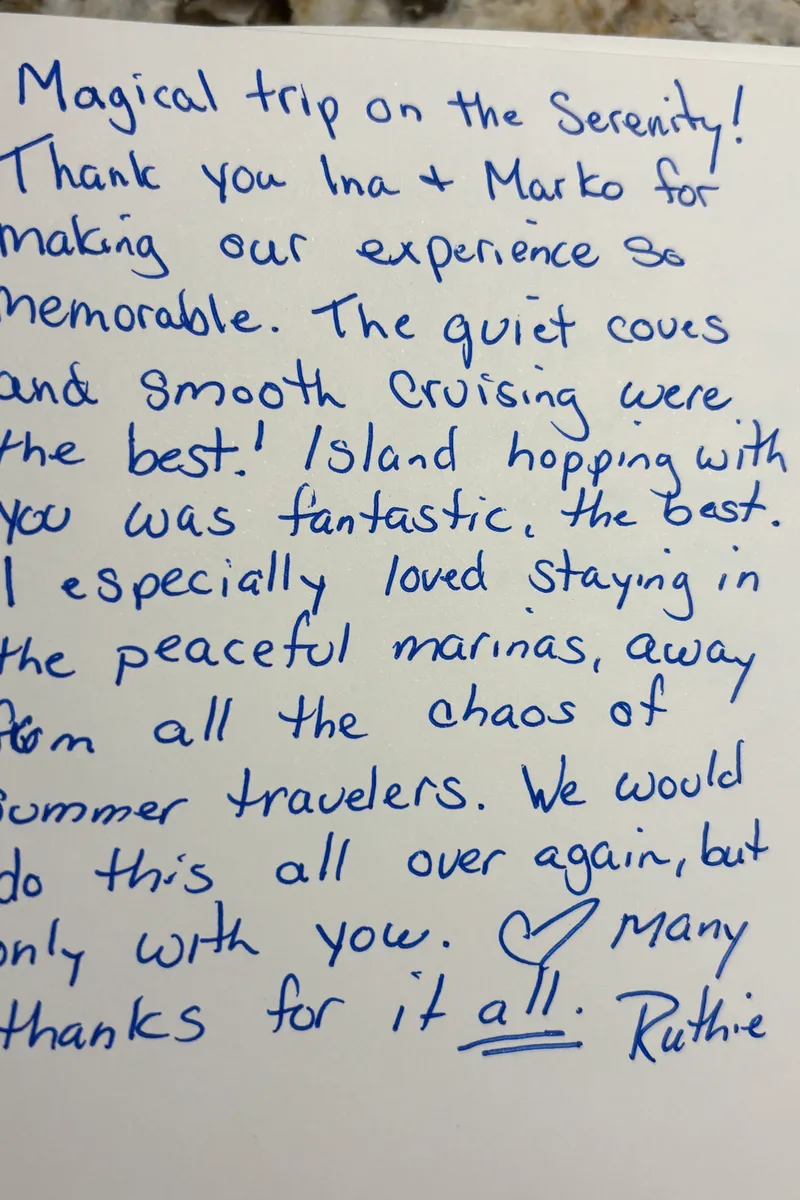 Magical trip on the Serenity!
Thank you Ina + Marko for
making our experience so
memorable. The quiet coves
and smooth cruising were
the best! Island hopping with
you was fantastic, the best.
I especially loved staying in
the peaceful marinas, away
from all the chaos of
summer travelers. We would
do this all over again, but
only with you. ♡ Many
thanks for it all. Ruthie